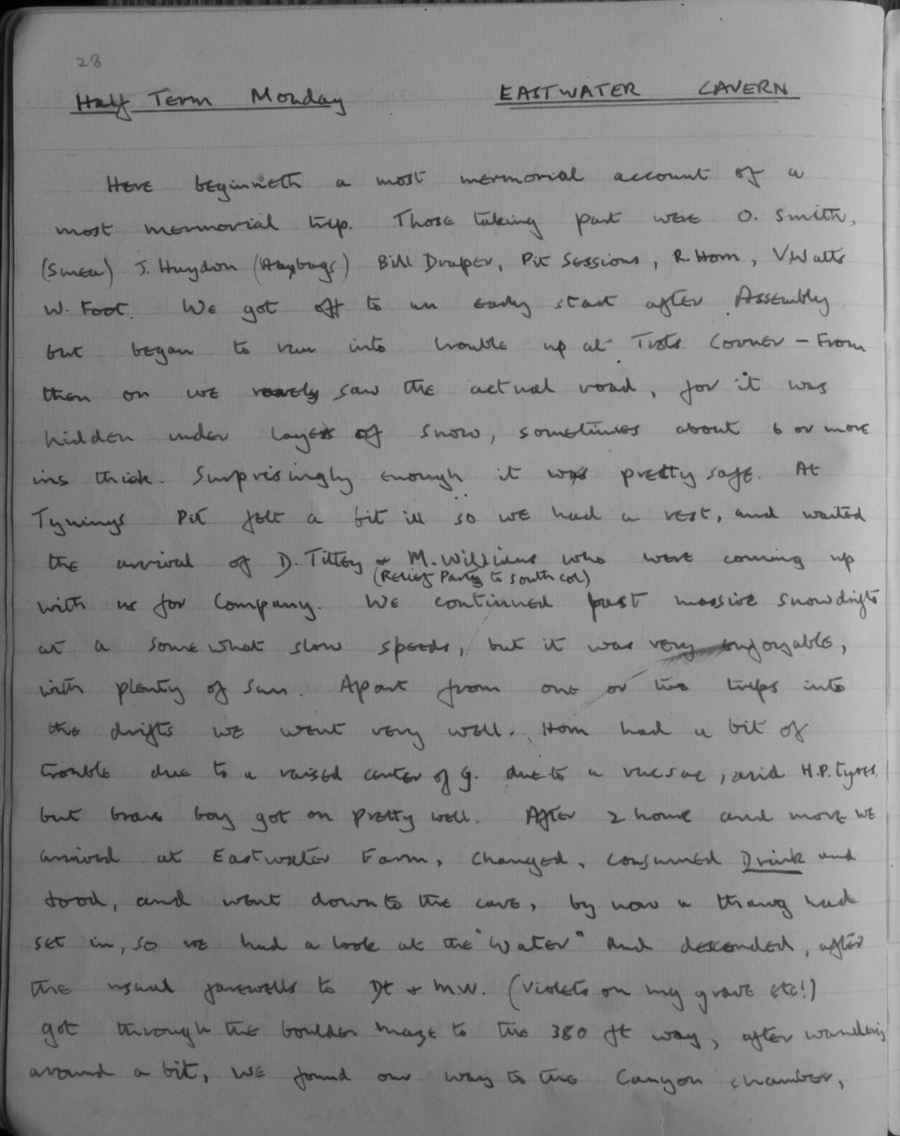 28
Half Term Monday EASTWATER CAVERN
Here beginneth a most mermorial account of a
most mermorial trip. Those taking part were O. Smith,
(Smea) J. Haydon (Haybags) Bill Draper, Pit Sessions, R Horn, V. Watts
W. Foot. We got off to an early start after Assembly
but began to run into trouble up at Corner - From
then on we rarely saw the actual road, for it was
hidden under layers of snow, sometimes about 6 or more
ins thick. Surprisingly enough it was pretty safe. At
Tynings Pit felt a bit ill so we had a rest, and waited
the arrival of D. Tilley + M. Williams who were coming up
(Relief Party to South col)
with us for company. We continued past massive snowdrifts
at a somewhat slow speeds, but it was very enjoyable,
with plenty of sun. Apart from one or two trips into
the drifts we went very well. Horn had a bit of
trouble due to a raised center of g. due to a rucsac, and H.P. tyres.
but brave boy got on pretty well. After 2 hours and more we
arrived at Eastwater Farm, changed, consumed Drink and
food, and went down to the cave, by now a thaw had
set in, so we had a look at the "Water" and descended, after
the usual farewells to Dt + M.W. (Violets on my grave etc!)
got through the boulder maze to the 380 ft way, after wandering
around a bit, we found our way to the Canyon chamber,